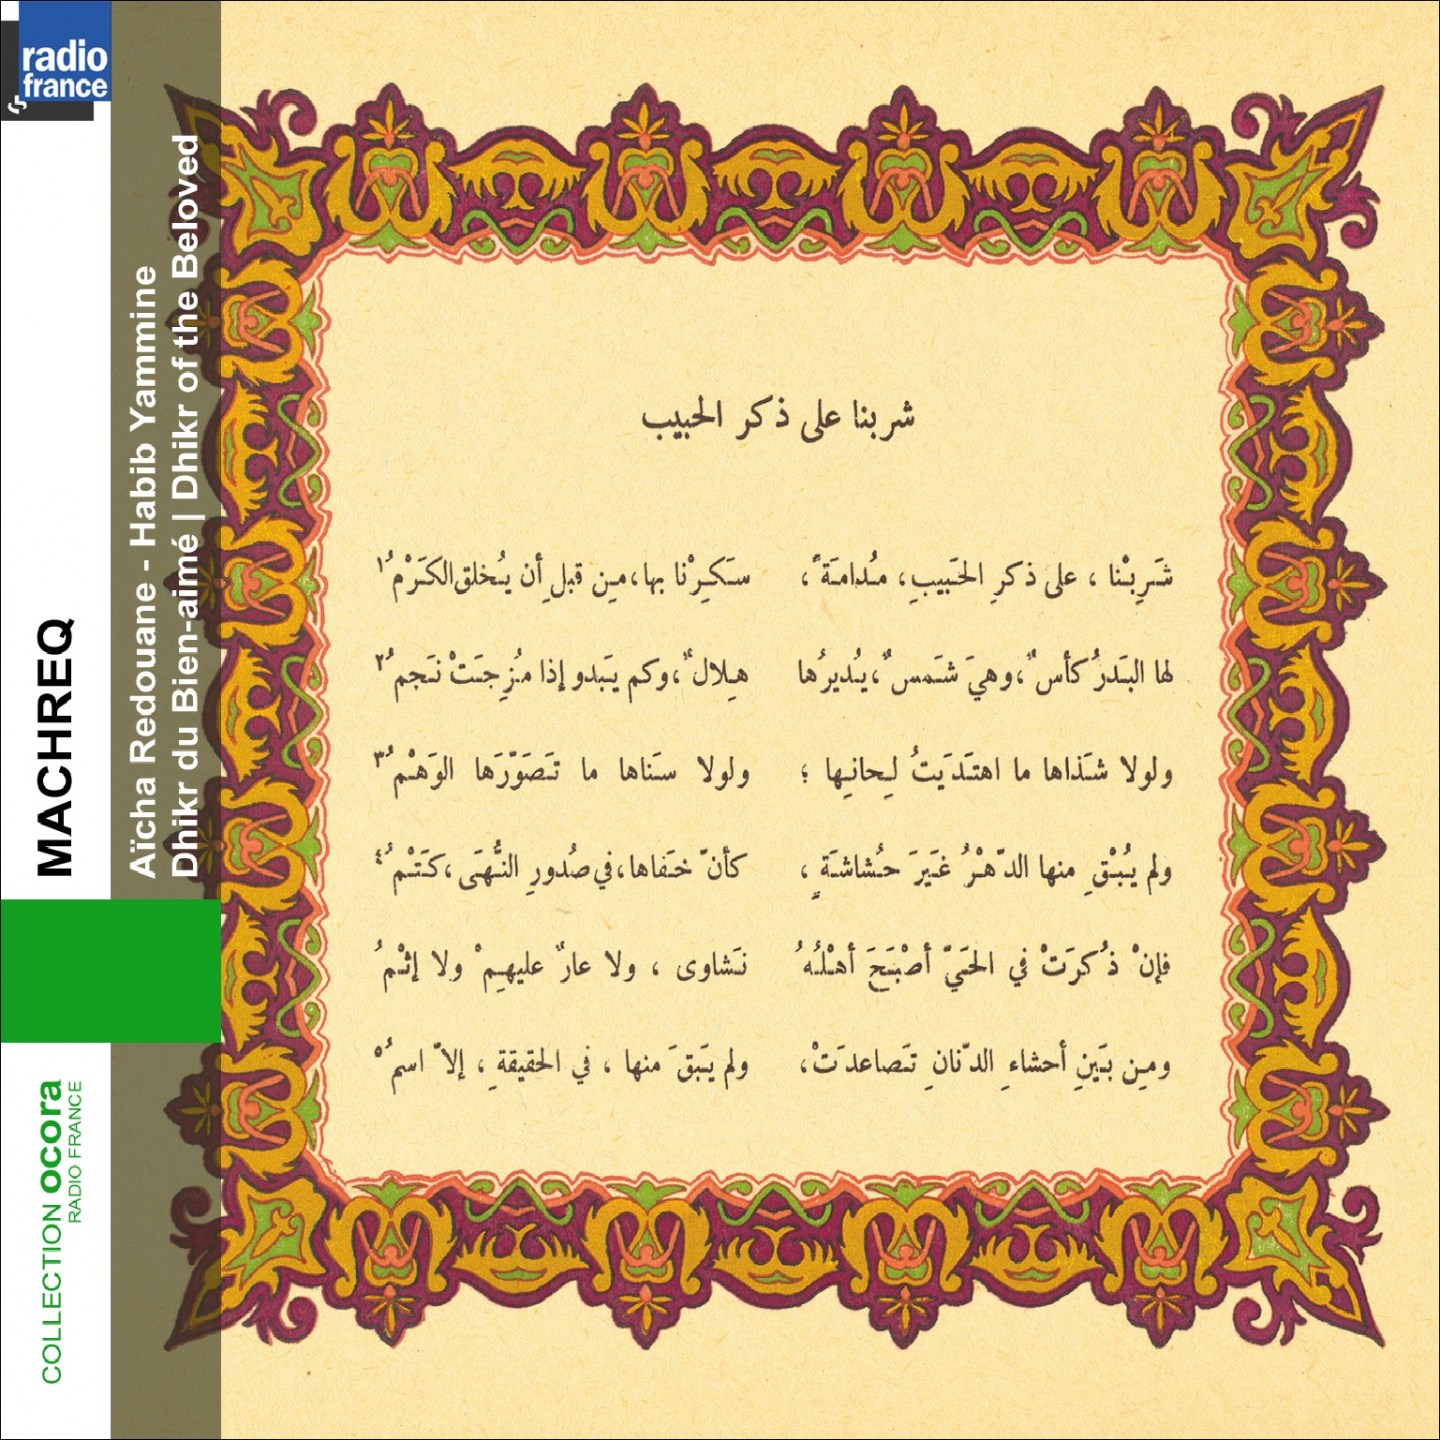 radio
france
MACHREQ
Aïcha Redouane - Habib Yammine
Dhikr du Bien-aimé | Dhikr of the Beloved
COLLECTION ocora
RADIO FRANCE
شربنا على ذكر الحبيب
شَرِبْنا ، على ذكرِ الحَبيبِ، مُدامَةً ، سَكِرْنا بها، مِن قبلِ أن يُخلق الكَرْمُ ١
لها البَدرُ كأسٌ ، وهيَ شَمسٌ ، يُديرُها هِلالٌ ، وكم يَبدو إذا مُزِجَتْ نَجمُ ٢
ولولا شَذاها ما اهتَدَيتُ لِحانِها ؛ ولولا سَناها ما تَصَوّرَها الوَهْمُ ٣
ولم يُبْقِ منها الدّهْرُ غَيرَ حُشاشَةٍ ، كأنّ خَفاها، في صُدورِ النُّهَى ، كَتْمُ ٤
فإنْ ذُكرَتْ في الحَيّ أصْبَحَ أهْلُهُ نَشاوى ، ولا عارٌ عليهِمْ ولا إثْمُ
ومِن بَينِ أحشاءِ الدّنانِ تَصاعدَتْ، ولم يَبقَ منها ، في الحقيقةِ ، إلاّ اسمُ ٥